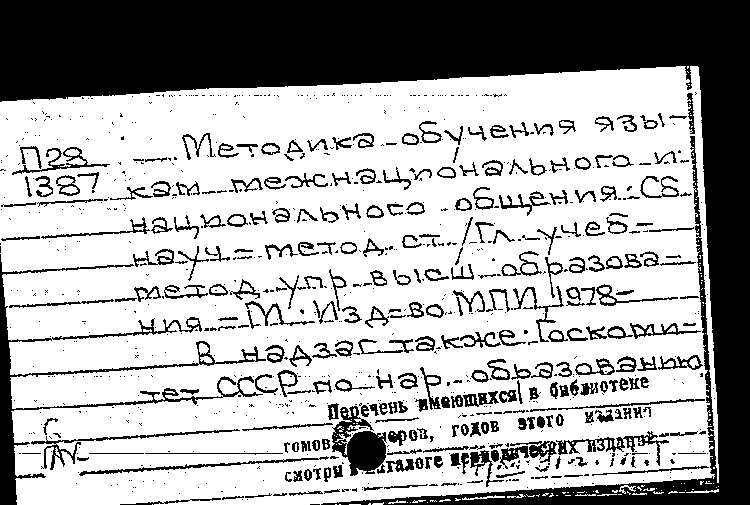 П28
1387
Методика обучения язы-
кам межнационального и
национального общения: Сб.
науч-метод. ст. / Гл. учеб-
метод. упр. высш. образова-
ния. - М.: Изд-во МПИ, 1978-
В надзаг. также: Госкоми-
тет СССР по нар. образованию
Перечень имеющихся в библиотеке
томов, номеров, годов этого издания
смотри в каталоге периодических изданий
С